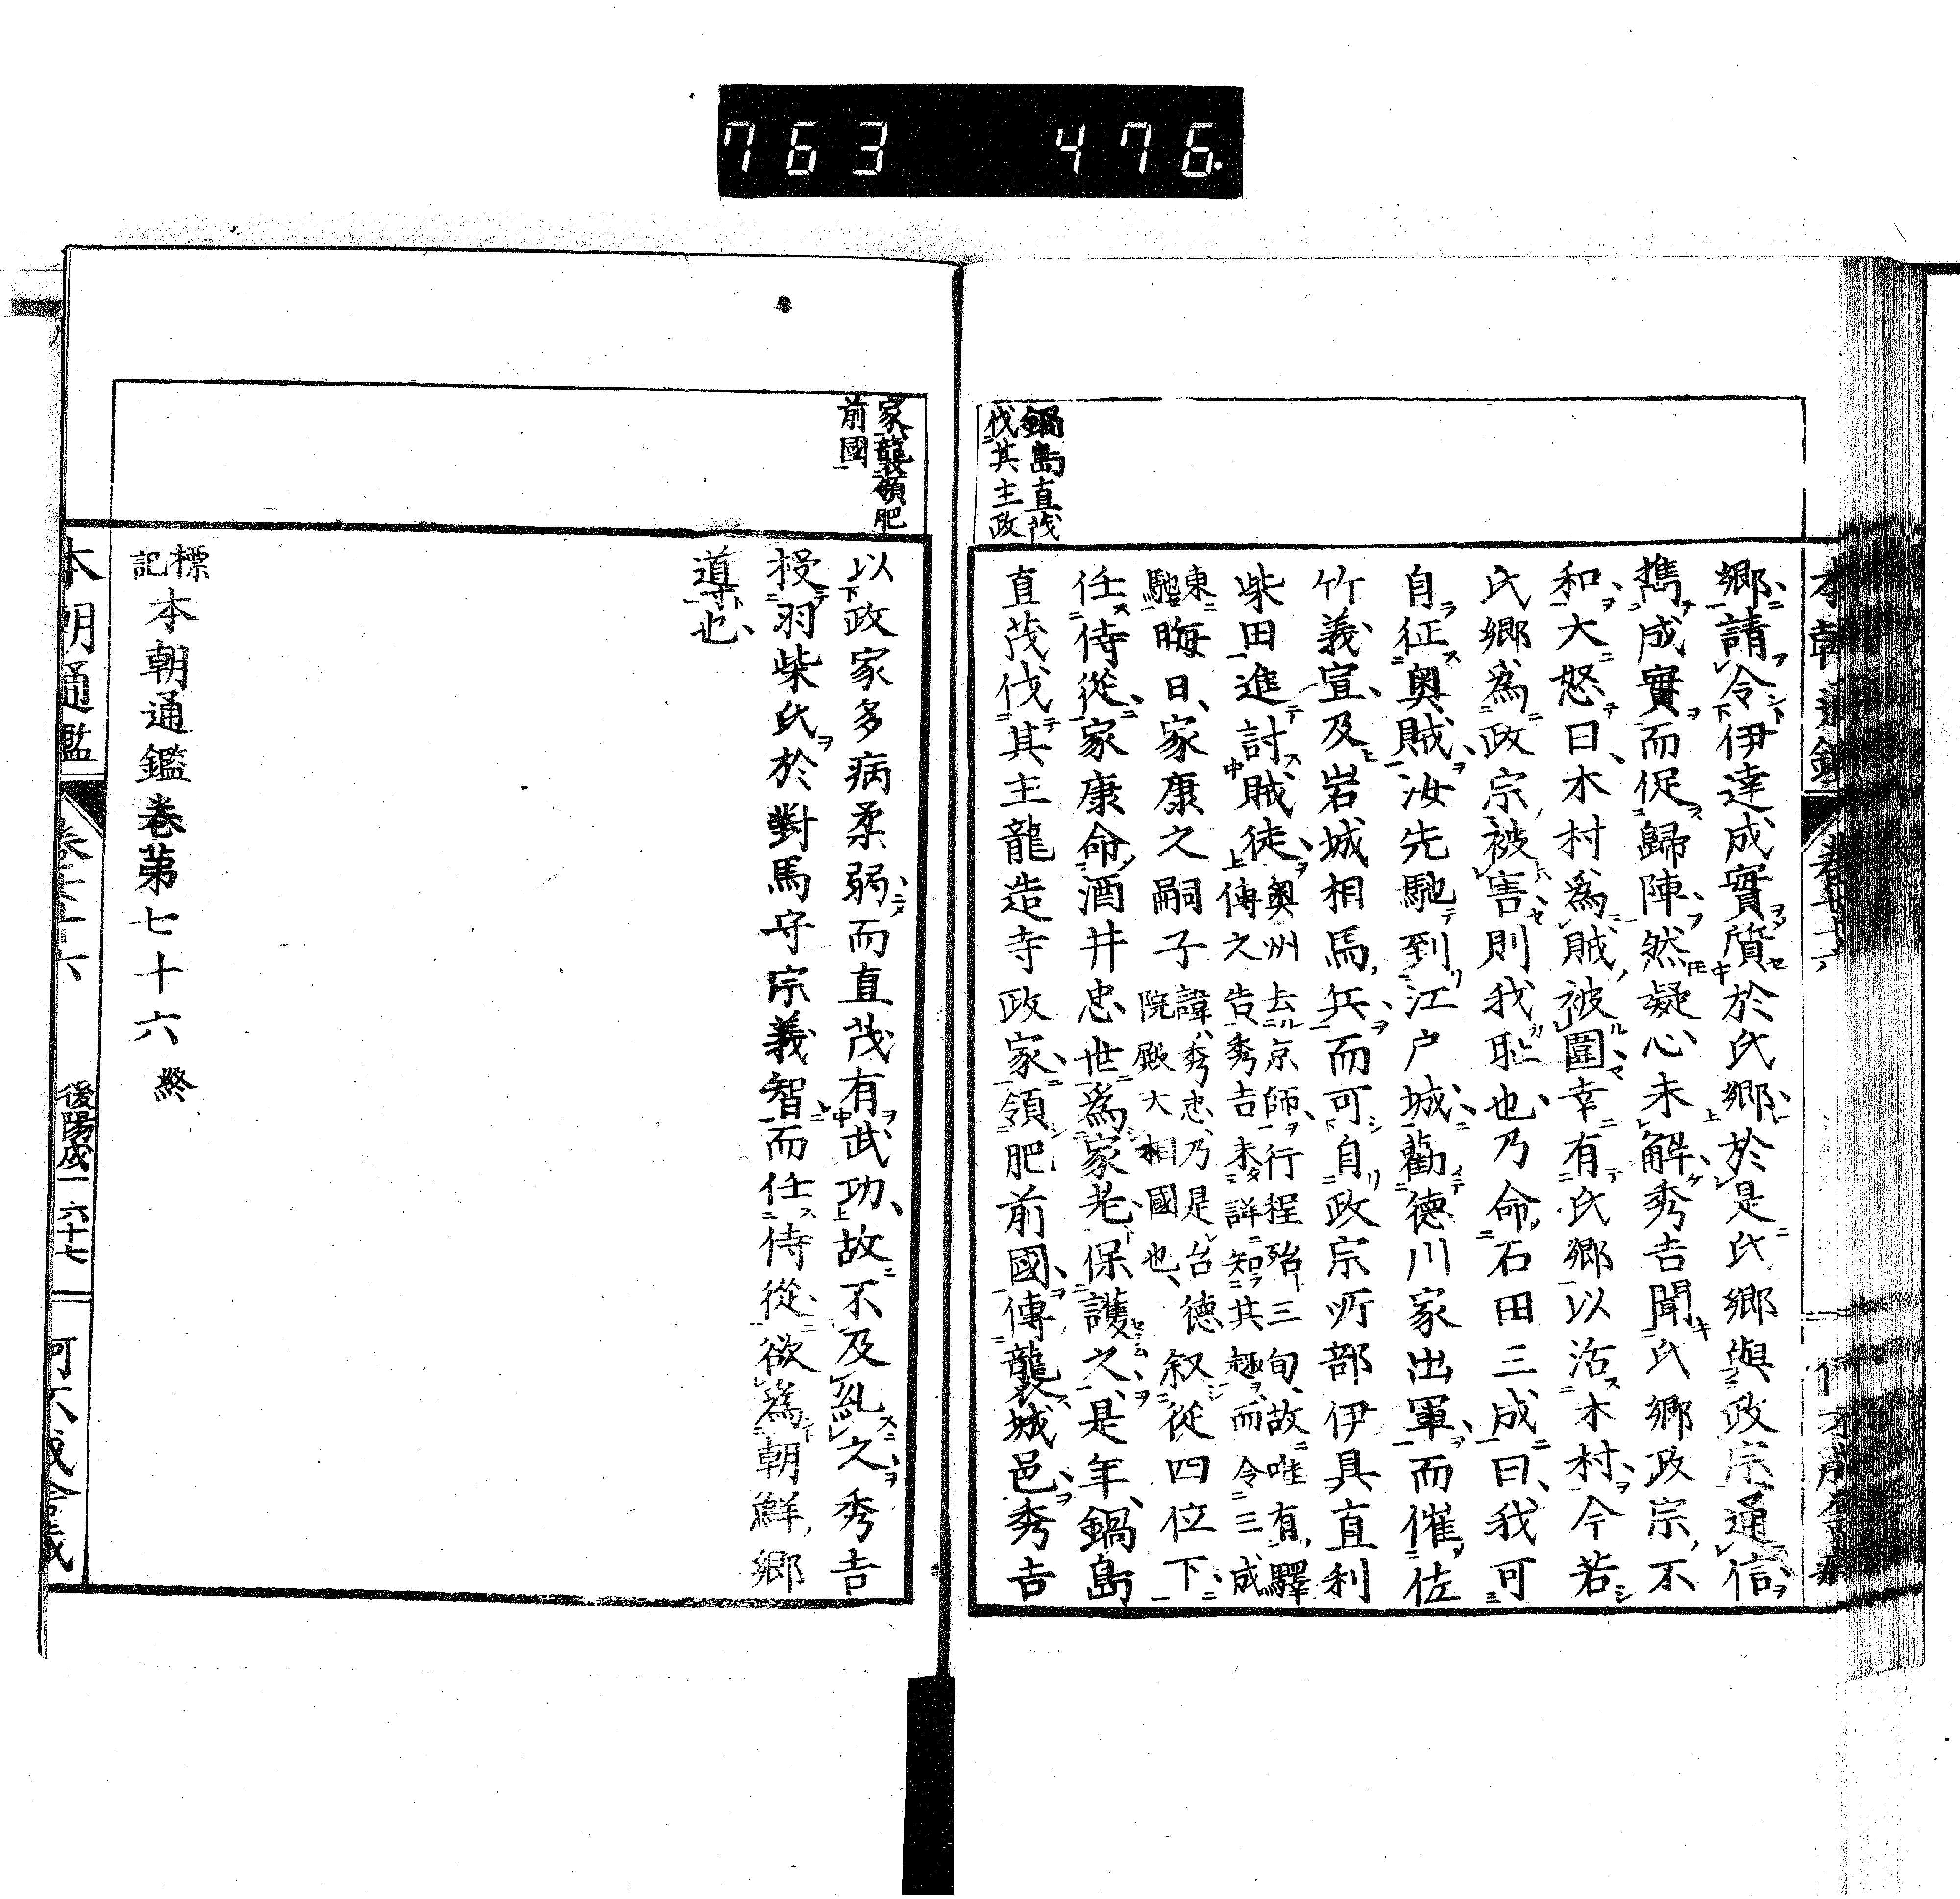 763 476
鍋島直茂
伐其主政
鄉請令伊達成實質於氏鄉於是氏鄉與政宗通信
携成實而促歸陣然疑心未解秀吉聞氏鄉政宗不
和大怒曰木村為賊被圍幸有氏鄉以活木村今若
氏鄉為政宗被害則我恥也乃命石田三成曰我可
自征奥賊汝先馳到江戸城勸德川家出軍而催佐
竹義宣及岩城相馬兵而可自政宗所部伊具直利
柴田進討賊徒奥州去京師行程殆三旬故唯有驛
傳之告秀吉未詳知其趣而令三成
東馳晦日家康之嗣子諱秀忠乃是台德
院殿大相國也叙從四位下
任侍從家康命酒井忠世為家老保護之是年鍋島
直茂伐其主龍造寺政家領肥前國傳襲城邑秀吉
家襲領肥
前國
以政家多病柔弱而直茂有武功故不及糺之秀吉
授羽柴氏於對馬守宗義智而任侍從欲為朝鮮鄉
導也
標記 本朝通鑑卷第七十六 終
本朝通鑑 卷七十六 後陽成一 六十七